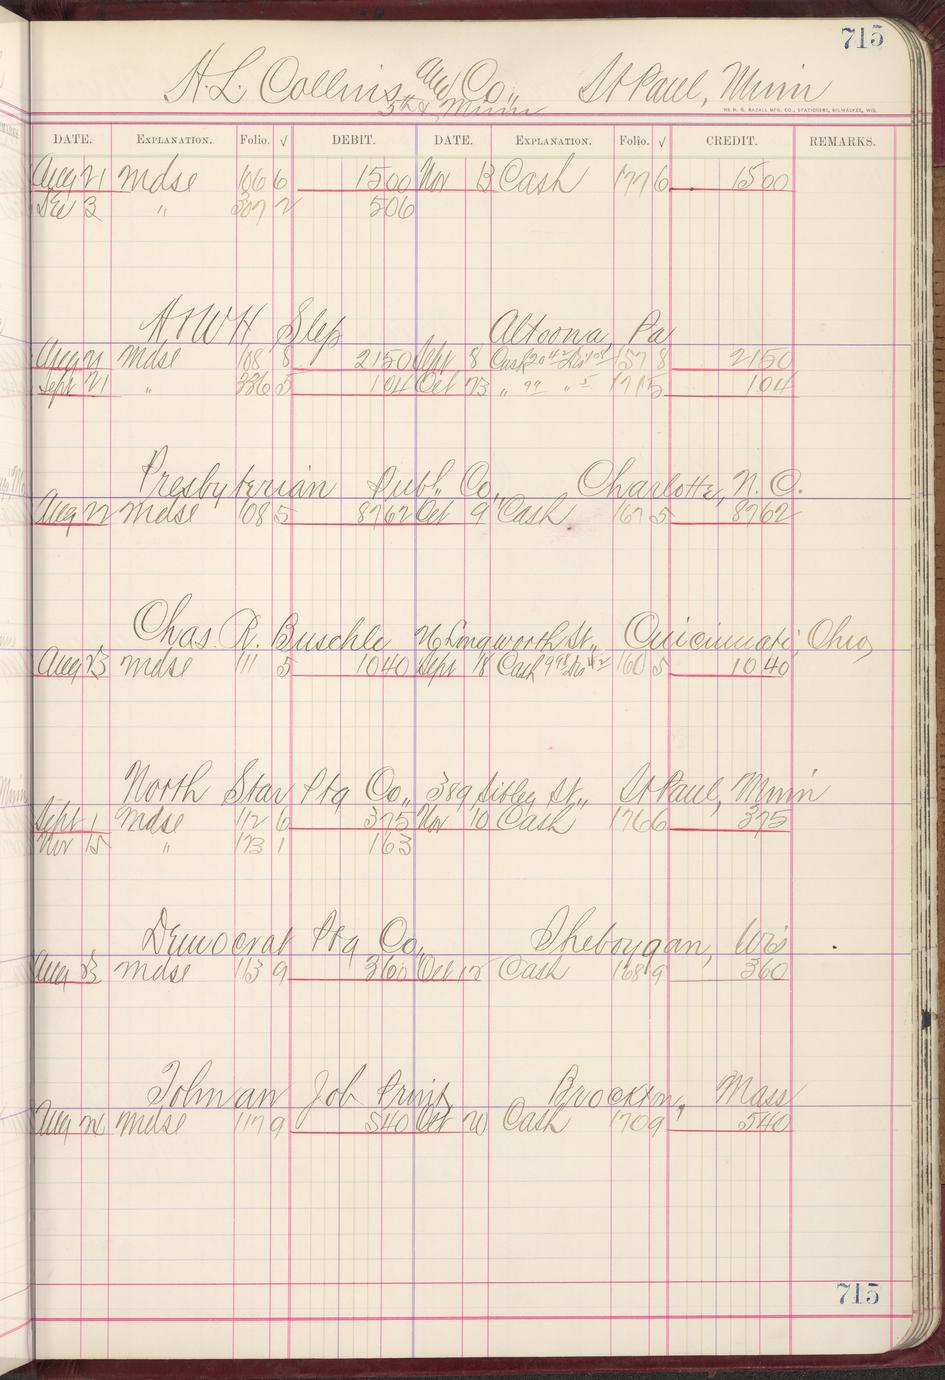 715
H. L. Collins and Co., St Paul, Minn
5th & Minn
THE H. G. RAZALL MFG. CO., STATIONERS, MILWAUKEE, WIS.
DATE. EXPLANATION. Folio. √ DEBIT. DATE. EXPLANATION. Folio. √ CREDIT. REMARKS.
Aug 21 Mdse 106 6 1500 Nov 13 Cash 177 6 1500
Dec 3 " 307 2 506
Altoona, Pa
Aug 21 Mdse 108 8 2150 Sept 8 Cash 20 42 Dis 1 08 157 8 2150
Sept 21 " 336 5 104 Oct 23 " 99 " 5 171 5 104
Presbyterian Publ. Co., Charlotte, N. C.
Aug 22 Mdse 108 5 8762 Oct 9 Cash 167 5 8762
Chas. R. Buschle Longworth St., Cincinnati, Ohio
Aug 23 Mdse 111 5 1040 Sept 18 Cash 9 98 Dis 42 160 5 1040
North Star Ptg Co., 389 Sibley St., St Paul, Minn
Sept 1 Mdse 112 6 375 Nov 10 Cash 176 6 375
Nov 15 " 173 1 163
Democrat Ptg Co., Sheboygan, Wis
Aug 23 Mdse 113 9 360 Oct 12 Cash 168 9 360
Job Print, Brockton, Mass
Aug 24 Mdse 117 9 540 Oct 20 Cash 170 9 540
715